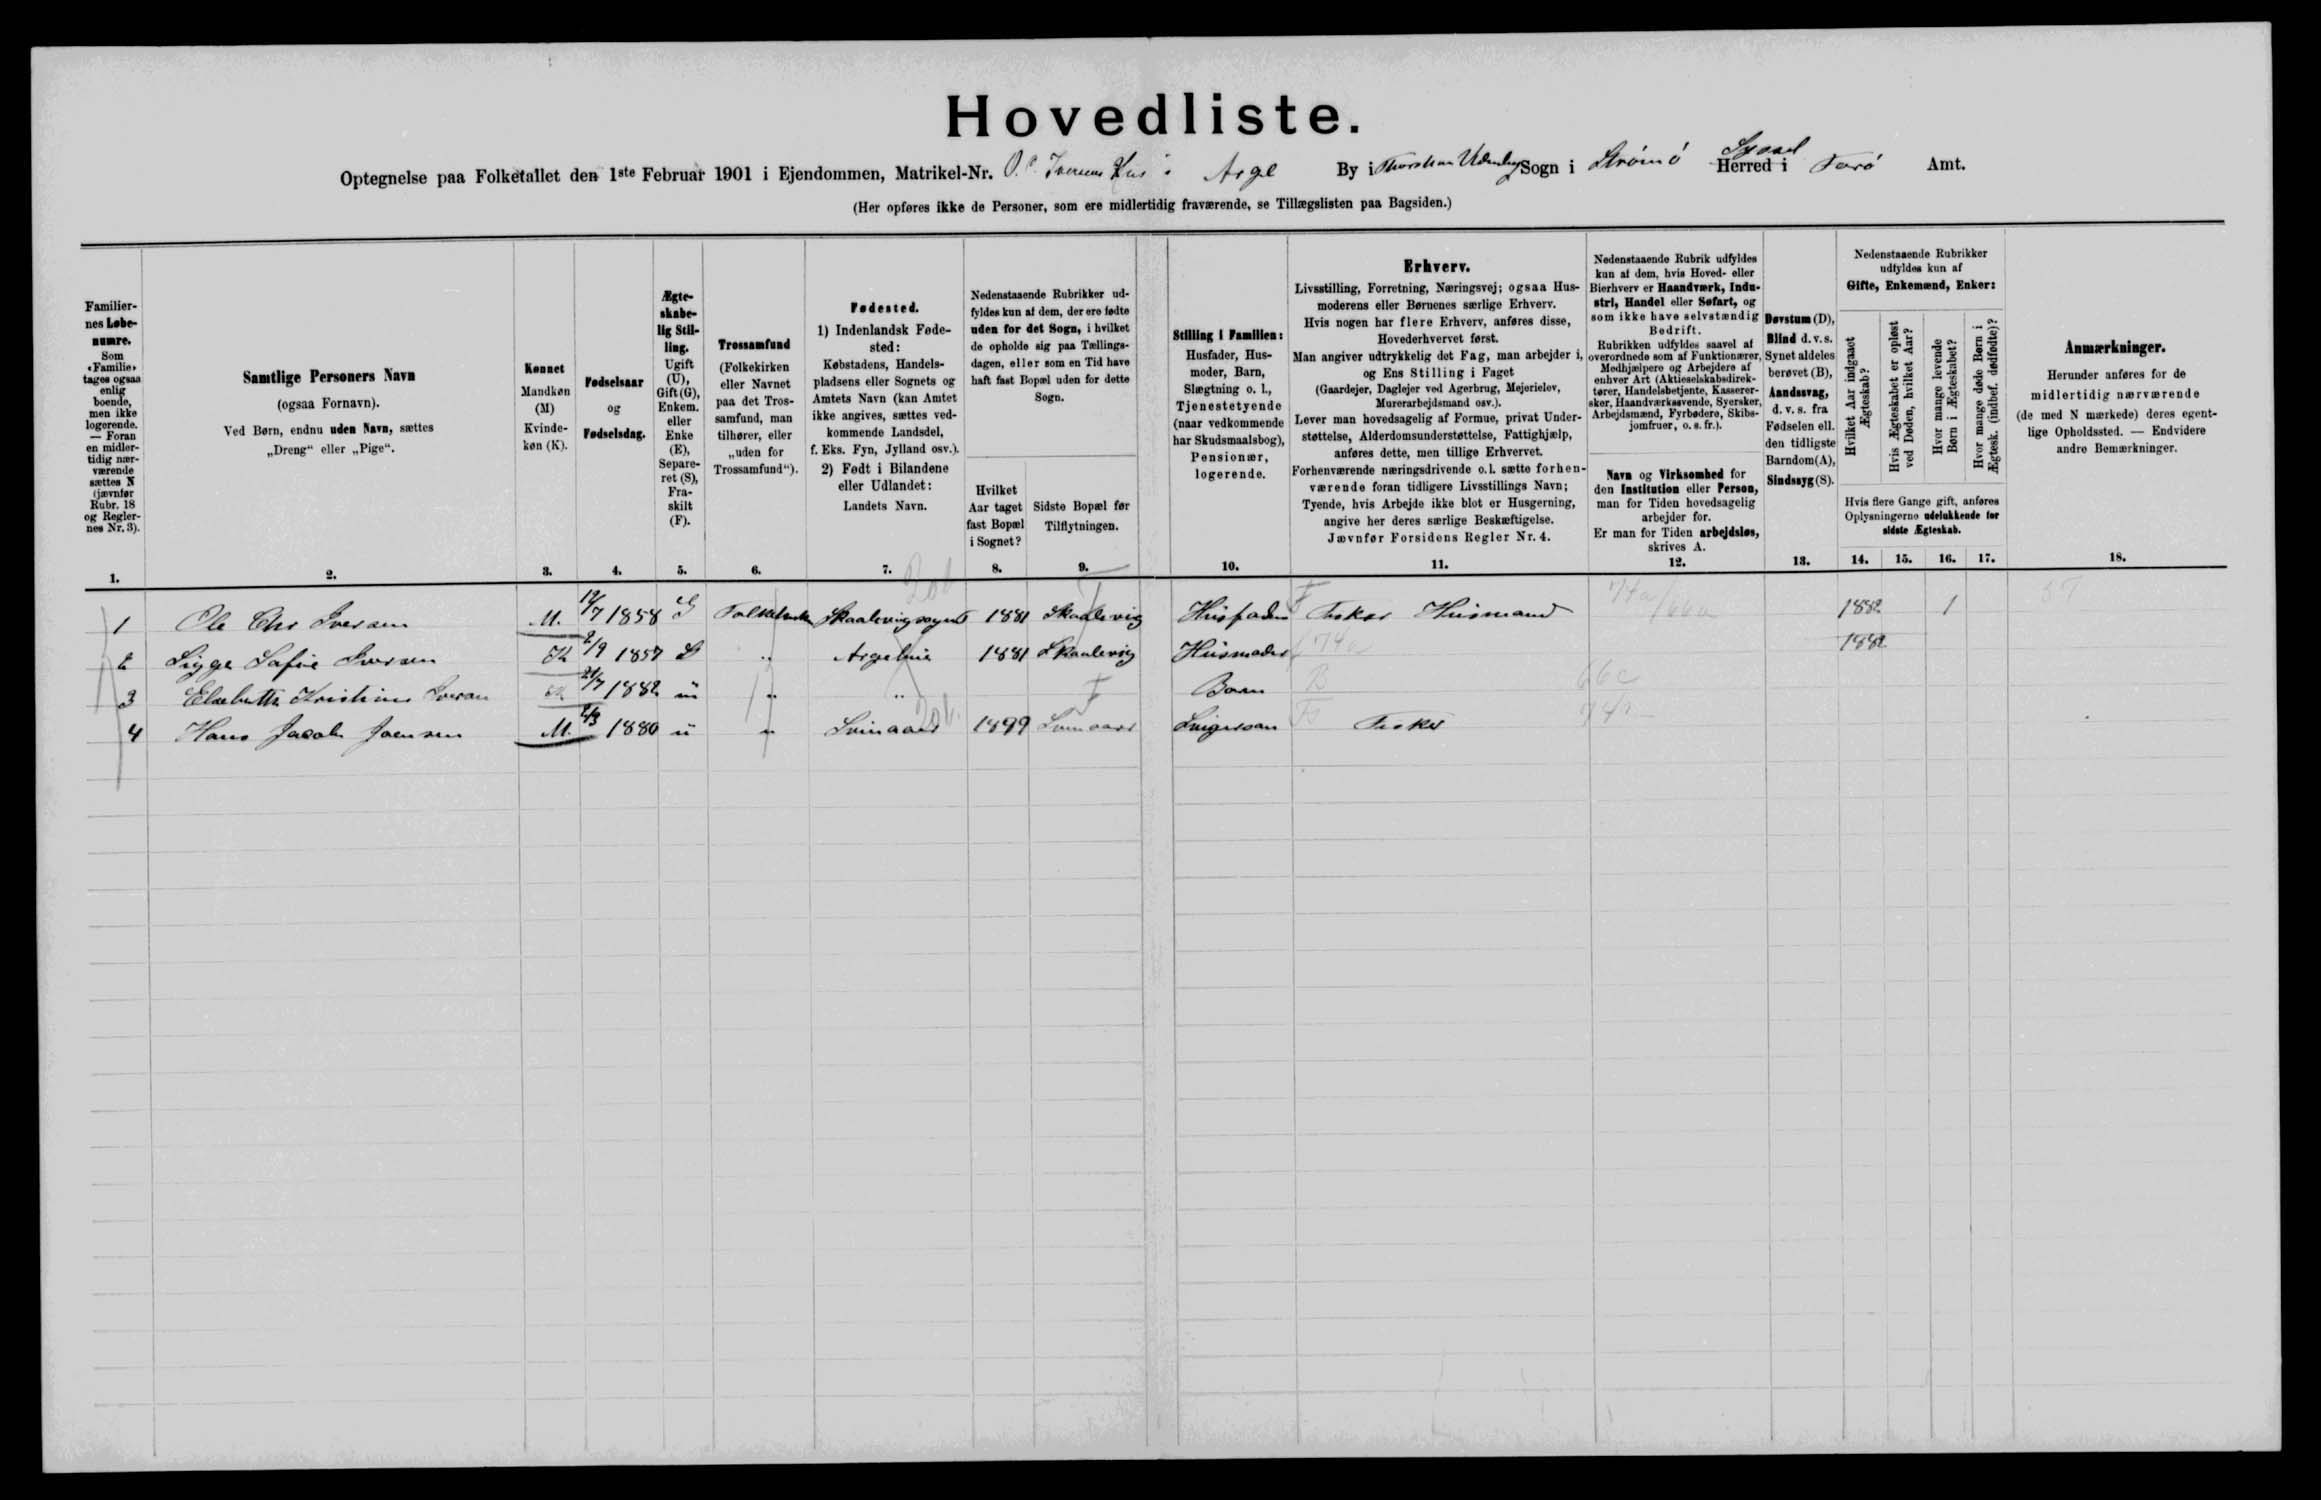 Hovedliste.
Optegnelse paa Folketallet den 1ste Februar 1901 i Ejendommen, Matrikel-Nr. O. C. Iversens Hus i Arge By i Thorshavn Udenby Sogn i Strömö Syssel Herred i Færö Amt.
(Her opføres ikke de Personer, som ere midlertidig fraværende, se Tillægslisten paa Bagsiden.)
Familier-
nes Løbe-
numre.
Som
«Familie»
tages ogsaa
enlig
boende,
men ikke
logerende.
— Foran
en midler-
tidig nær-
værende
sættes N
(jævnfør
Rubr. 18
og Regler-
nes Nr. 3).
1.
Samtlige Personers Navn
(ogsaa Fornavn).
Ved Børn, endnu uden Navn, sættes
„Dreng“ eller „Pige“.
2.
Kønnet
Mandkøn
(M)
Kvinde-
køn (K).
3.
Fødselsaar
og
Fødselsdag.
4.
Ægte-
skabe-
lig Stil-
ling.
Ugift
(U),
Gift (G),
Enkem.
eller
Enke
(E),
Separe-
ret (S),
Fra-
skilt
(F).
5.
Trossamfund
(Folkekirken
eller Navnet
paa det Tros-
samfund, man
tilhører, eller
„uden for
Trossamfund“).
6.
Fødested.
1) Indenlandsk Føde-
sted:
Købstadens, Handels-
pladsens eller Sognets og
Amtets Navn (kan Amtet
ikke angives, sættes ved-
kommende Landsdel,
f. Eks. Fyn, Jylland osv.).
2) Født i Bilandene
eller Udlandet:
Landets Navn.
7.
Nedenstaaende Rubrikker ud-
fyldes kun af dem, der ere fødte
uden for det Sogn, i hvilket
de opholde sig paa Tællings-
dagen, eller som en Tid have
haft fast Bopæl uden for dette
Sogn.
Hvilket
Aar taget
fast Bopæl
i Sognet?
8.
Sidste Bopæl før
Tilflytningen.
9.
Stilling i Familien:
Husfader, Hus-
moder, Barn,
Slægtning o. l.,
Tjenestetyende
(naar vedkommende
har Skudsmaalsbog),
Pensionær,
logerende.
10.
Erhverv.
Livsstilling, Forretning, Næringsvej; ogsaa Hus-
moderens eller Børnenes særlige Erhverv.
Hvis nogen har flere Erhverv, anføres disse,
Hovederhvervet først.
Man angiver udtrykkelig det Fag, man arbejder i,
og Ens Stilling i Faget
(Gaardejer, Daglejer ved Agerbrug, Mejerielev,
Murerarbejdsmand osv.).
Lever man hovedsagelig af Formue, privat Under-
støttelse, Alderdomsunderstøttelse, Fattighjælp,
anføres dette, men tillige Erhvervet.
Forhenværende næringsdrivende o.l. sætte forhen-
værende foran tidligere Livsstillings Navn;
Tyende, hvis Arbejde ikke blot er Husgerning,
angive her deres særlige Beskæftigelse.
Jævnfør Forsidens Regler Nr. 4.
11.
Nedenstaaende Rubrik udfyldes
kun af dem, hvis Hoved- eller
Bierhverv er Haandværk, Indu-
stri, Handel eller Søfart, og
som ikke have selvstændig
Bedrift.
Rubrikken udfyldes saavel af
overordnede som af Funktionærer,
Medhjælpere og Arbejdere af
enhver Art (Aktieselskabsdirek-
tører, Handelsbetjente, Kasserer-
sker, Haandværkssvende, Syersker,
Arbejdsmænd, Fyrbødere, Skibs-
jomfruer, o. s. fr.).
Navn og Virksomhed for
den Institution eller Person,
man for Tiden hovedsagelig
arbejder for.
Er man for Tiden arbejdsløs,
skrives A.
12.
Døvstum (D),
Blind d. v. s.
Synet aldeles
berøvet (B),
Aandssvag,
d. v. s. fra
Fødselen ell.
den tidligste
Barndom (A),
Sindssyg (S).
13.
Nedenstaaende Rubrikker
udfyldes kun af
Gifte, Enkemænd, Enker:
Hvilket Aar indgaaet
Ægteskab?
Hvis Ægteskabet er opløst
ved Døden, hvilket Aar?
Hvor mange levende
Børn i Ægteskabet?
Hvor mange døde Børn i
Ægtesk. (indbef. dødfødte)?
Hvis flere Gange gift, anføres
Oplysningerne udelukkende for
sidste Ægteskab.
14. 15. 16. 17.
Anmærkninger.
Herunder anføres for de
midlertidig nærværende
(de med N mærkede) deres egent-
lige Opholdssted. — Endvidere
andre Bemærkninger.
18.
1 Ole Chr Iversen M. 1858 G Folkekirken Skaalevig 1881 Skaalevig Husfader Fisker Husmand 74a/66a 1882 1
2 Sigge Sofie Iversen K 2/9 1857 G " Arge 1881 Skaalevig Husmoder 74a 1882
3 Elsebetta Kristine Iversen K 1882 u " " Barn B 66c
4 Hans Jacob Joensen M. 1880 u " Svinaar 1899 Svinaar Svigersøn Fisker